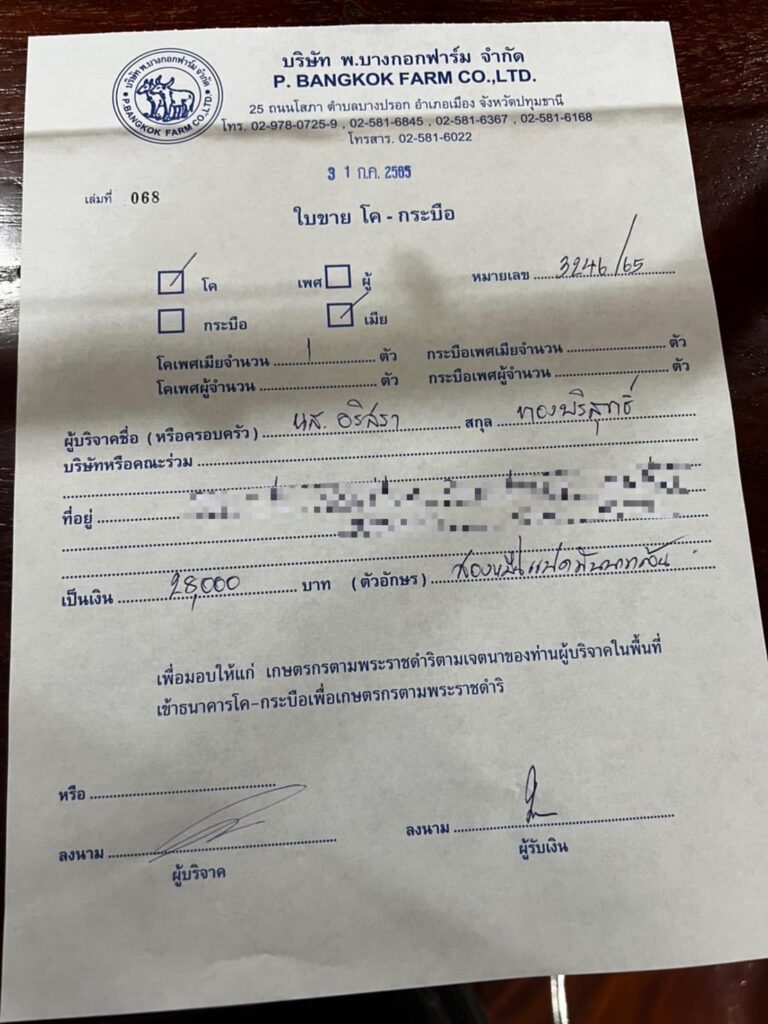 บริษัท พ.บางกอกฟาร์ม จำกัด
P. BANGKOK FARM CO.,LTD.
บริษัท พ.บางกอกฟาร์ม จำกัด
P.BANGKOK FARM CO.,LTD.
25 ถนนโสภา ตำบลบางปรอก อำเภอเมือง จังหวัดปทุมธานี
โทร. 02-978-0725-9 , 02-581-6845 , 02-581-6367 , 02-581-6168
โทรสาร. 02-581-6022
31 ก.ค. 2565
เล่มที่ 068
ใบขาย โค - กระบือ
โค เพศ ผู้ หมายเลข 3246/65
กระบือ เมีย
โคเพศเมียจำนวน 1 ตัว กระบือเพศเมียจำนวน ตัว
โคเพศผู้จำนวน ตัว กระบือเพศผู้จำนวน ตัว
ผู้บริจาคชื่อ (หรือครอบครัว) นส. อริสรา สกุล ทองบริสุทธิ์
บริษัทหรือคณะร่วม
ที่อยู่
เป็นเงิน 28,000 บาท (ตัวอักษร) สองหมื่นแปดพันบาทถ้วน
เพื่อมอบให้แก่ เกษตรกรตามพระราชดำริตามเจตนาของท่านผู้บริจาคในพื้นที่
เข้าธนาคารโค-กระบือเพื่อเกษตรกรตามพระราชดำริ
หรือ
ลงนาม ลงนาม
ผู้บริจาค ผู้รับเงิน